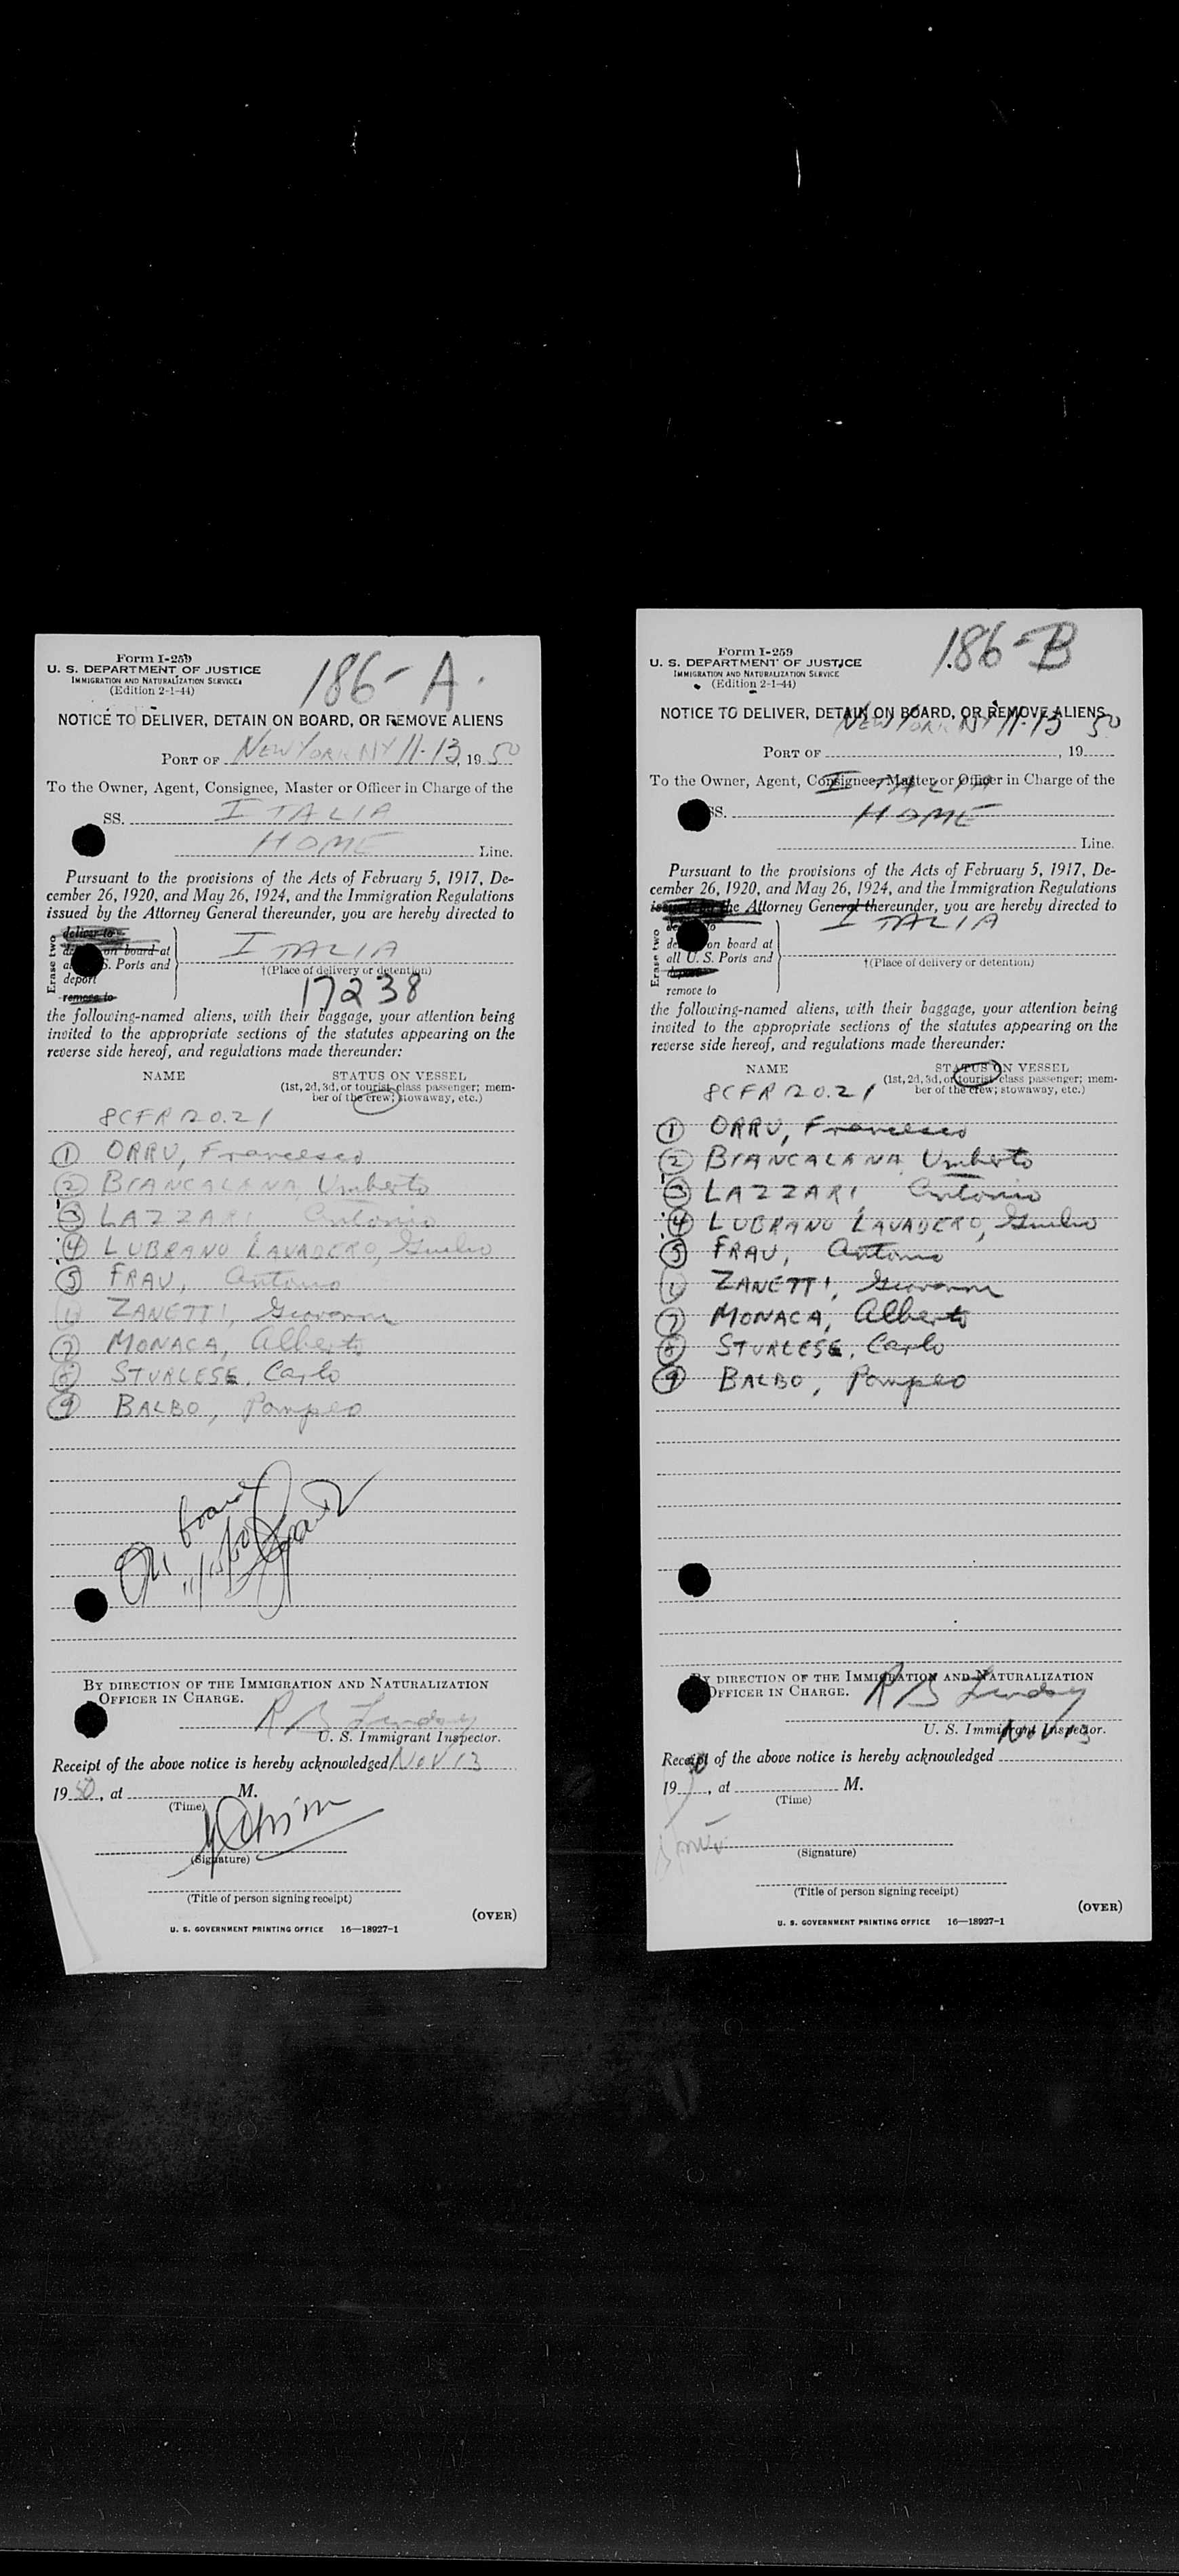 Form I-259
U. S. DEPARTMENT OF JUSTICE
IMMIGRATION AND NATURALIZATION SERVICE
(Edition 2-1-44)
186-A.
NOTICE TO DELIVER, DETAIN ON BOARD, OR REMOVE ALIENS
PORT OF NEW YORK NY 11-13, 1950
To the Owner, Agent, Consignee, Master or Officer in Charge of the
SS. ITALIA
HOME Line.
Pursuant to the provisions of the Acts of February 5, 1917, De-
cember 26, 1920, and May 26, 1924, and the Immigration Regulations
issued by the Attorney General thereunder, you are hereby directed to
Erase two
deliver to
on board at
S. Ports and
deport
remove to
ITALIA
†(Place of delivery or detention)
17238
the following-named aliens, with their baggage, your attention being
invited to the appropriate sections of the statutes appearing on the
reverse side hereof, and regulations made thereunder:
NAME
STATUS ON VESSEL
(1st, 2d, 3d, or tourist-class passenger; mem-
ber of the crew; stowaway, etc.)
8CFR120.21
1 ORRU, Francesco
2 BIANCALANA, Umberto
3 LAZZARI Antonio
4 LUBRANO LAVADERO, Giulio
5 FRAU, Antonio
6 ZANETTI, Giovanni
7 MONACA, Alberto
8 STURLESE, Carlo
9 BALBO, Pompeo
On board
BY DIRECTION OF THE IMMIGRATION AND NATURALIZATION
OFFICER IN CHARGE.
R B Lindsay
U. S. Immigrant Inspector.
Receipt of the above notice is hereby acknowledged Nov 13
1950, at M.
(Time)
(Signature)
(Title of person signing receipt)
(OVER)
U. S. GOVERNMENT PRINTING OFFICE 16—18927-1
Form I-259
U. S. DEPARTMENT OF JUSTICE
IMMIGRATION AND NATURALIZATION SERVICE
(Edition 2-1-44)
186-B
NOTICE TO DELIVER, DETAIN ON BOARD, OR REMOVE ALIENS
NEW YORK NY 11-13 50
PORT OF , 19
To the Owner, Agent, Consignee, Master or Officer in Charge of the
ITALIA
SS.
HOME
Line.
Pursuant to the provisions of the Acts of February 5, 1917, De-
cember 26, 1920, and May 26, 1924, and the Immigration Regulations
issued by the Attorney General thereunder, you are hereby directed to
ITALIA
Erase two
on board at
all U. S. Ports and
deport
remove to
†(Place of delivery or detention)
the following-named aliens, with their baggage, your attention being
invited to the appropriate sections of the statutes appearing on the
reverse side hereof, and regulations made thereunder:
NAME
STATUS ON VESSEL
(1st, 2d, 3d, or tourist-class passenger; mem-
ber of the crew; stowaway, etc.)
8CFR120.21
1 ORRU, Francesco
2 BIANCALANA Umberto
3 LAZZARI Antonio
4 LUBRANO LAVADERO, Giulio
5 FRAU, Antonio
6 ZANETTI, Giovanni
7 MONACA, Alberto
8 STURLESE, Carlo
9 BALBO, Pompeo
BY DIRECTION OF THE IMMIGRATION AND NATURALIZATION
OFFICER IN CHARGE.
R B Lindsay
U. S. Immigrant Inspector.
Nov 13
Receipt of the above notice is hereby acknowledged
19 , at M.
(Time)
(Signature)
(Title of person signing receipt)
(OVER)
U. S. GOVERNMENT PRINTING OFFICE 16—18927-1